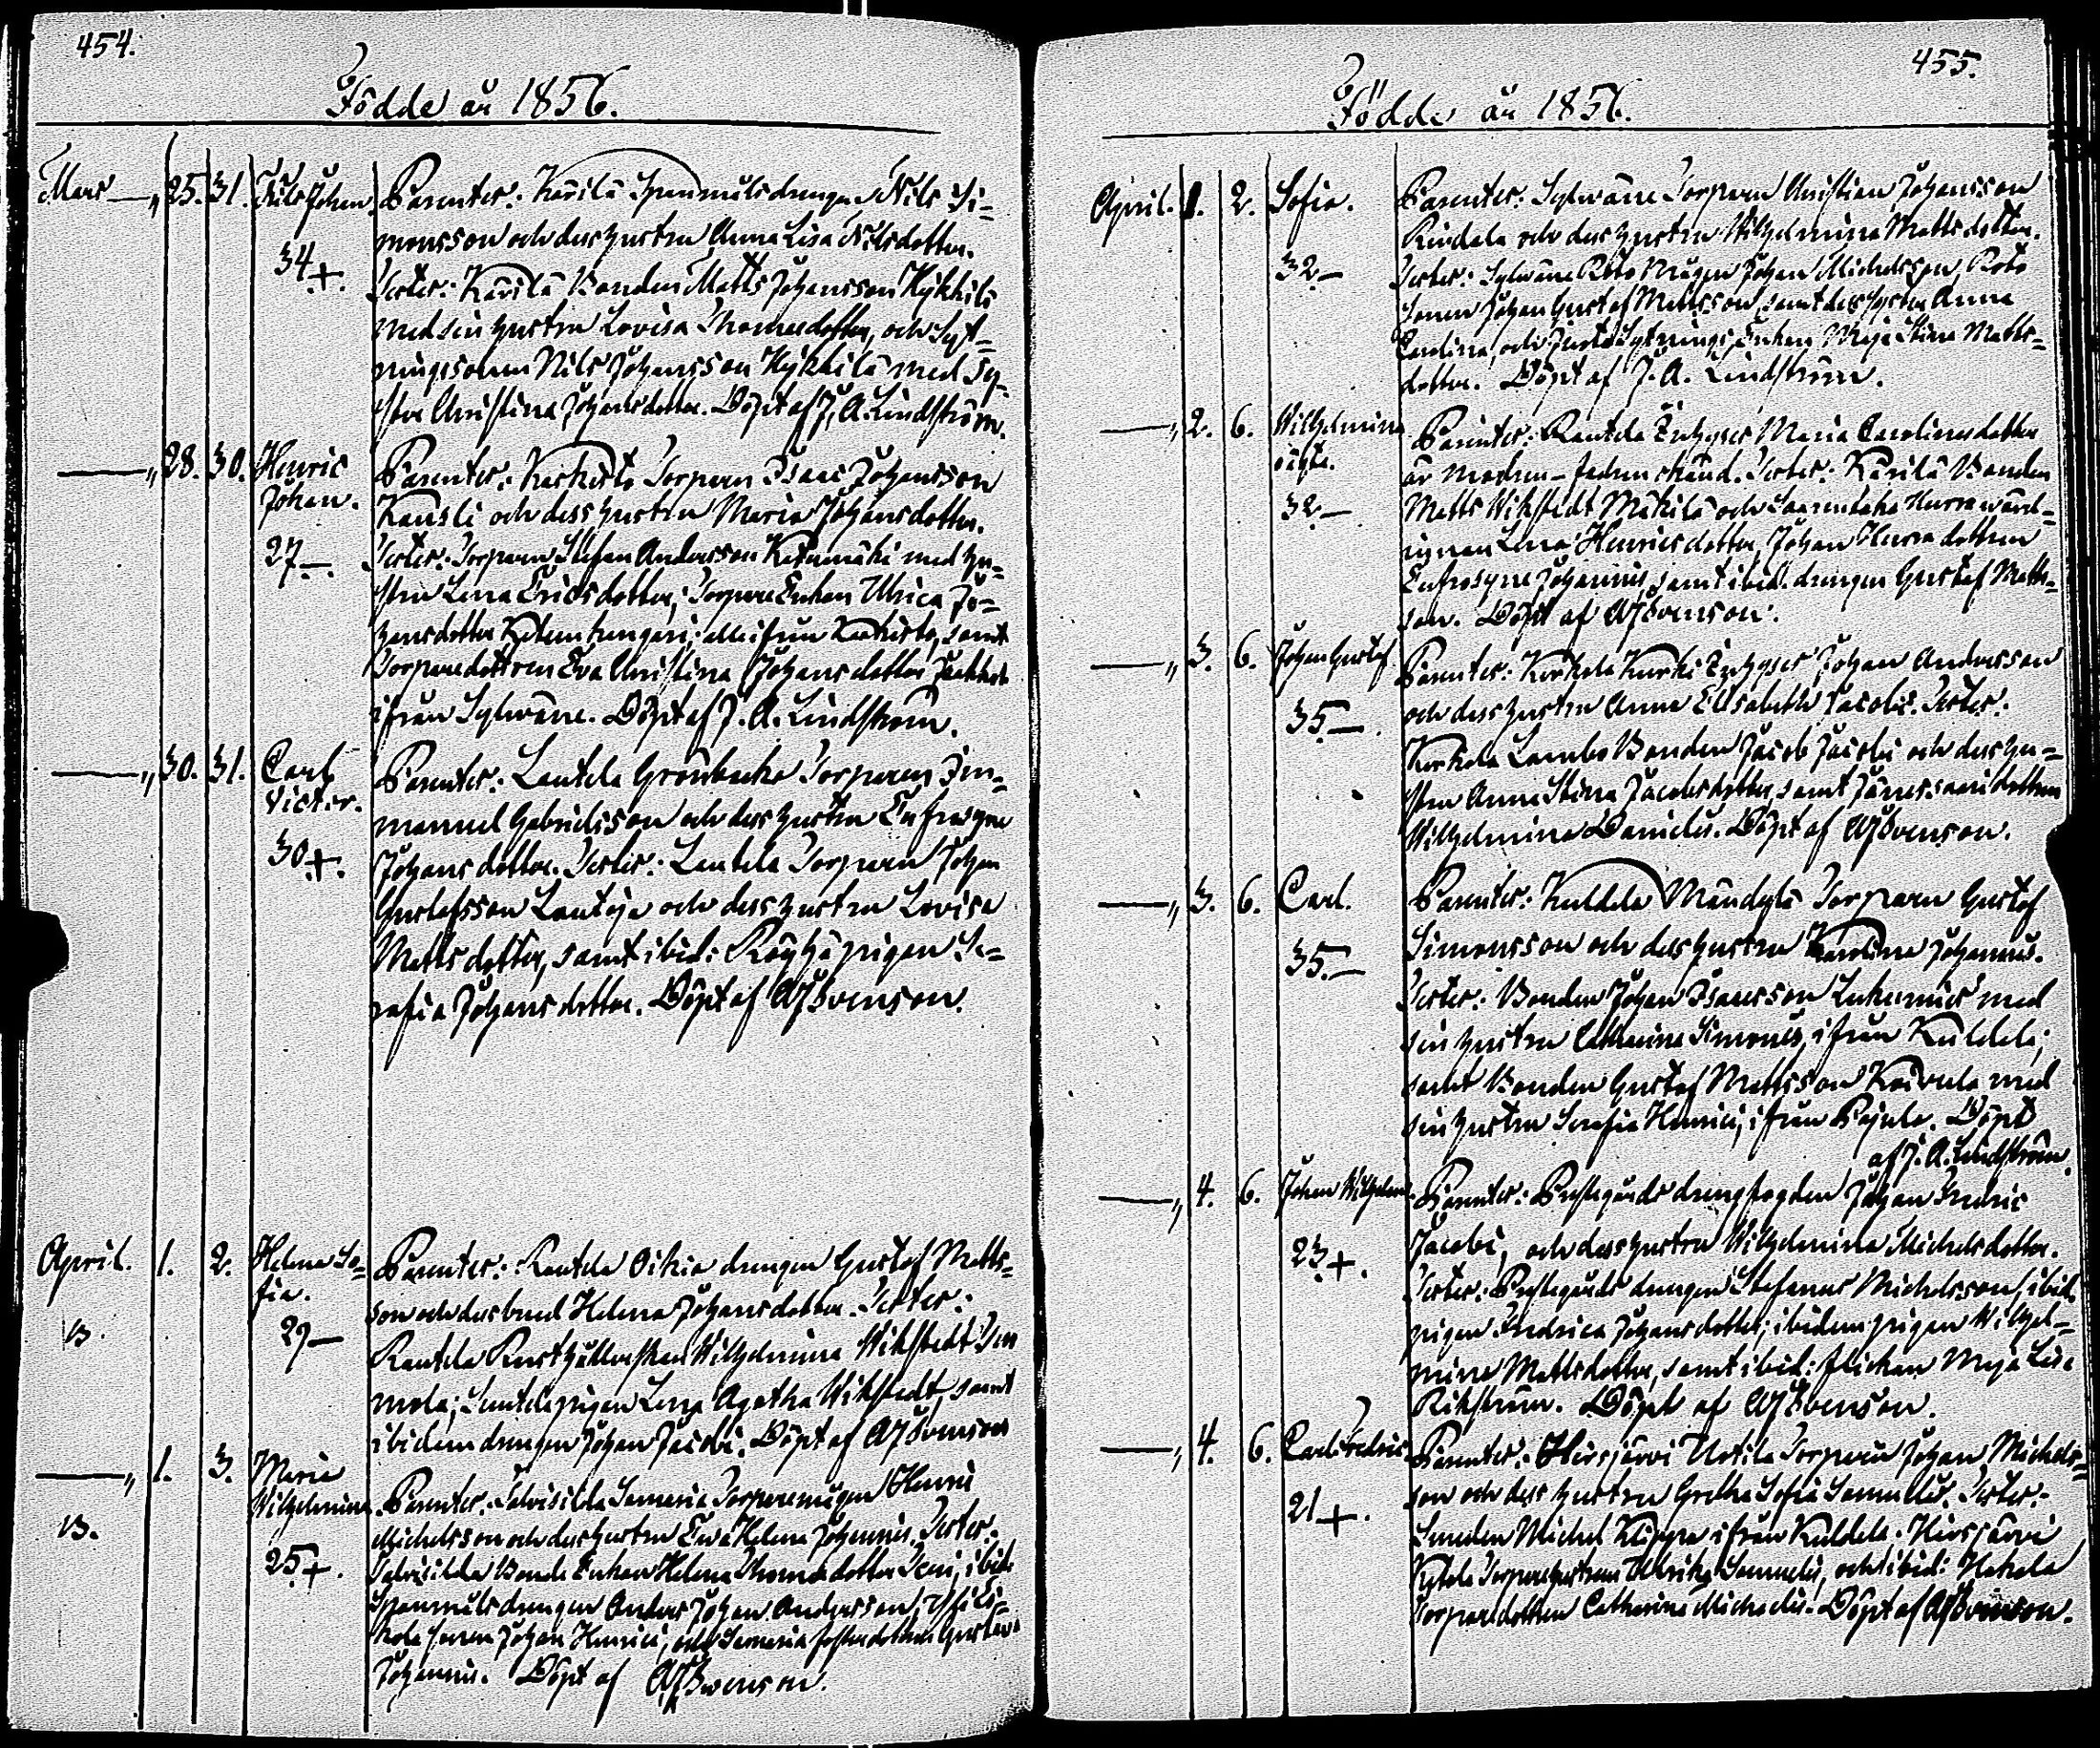 454.
Födde år 1856.
Mars — „ 25. 31. Nils Johan. Parenter: Kärilä Spanmåls drengen Nils Si-
monsson och dess hustru Anna Lisa Nilsdotter.
34 +. Tester: Kärilä Bonden Matts Johansson Hykkilä
med sin hustru Lovisa Thomasdotter, och Syt-
ningssonen Nils Johansson Hykkilä med Sy-
ster Christina Johansdotter. Döpt af J. A. Lindström.
— „ 28. 30. Henric Johan. Parenter: Karhisto Torparen Isaac Johansson
Kansli och dess hustru Maria Johansdotter.
27 —. Tester: Torparen Stefan Andersson Ketunmäki med hu-
stru Lena Ericsdotter, Torpare Enkan Ulrica Jo-
hansdotter; alle ifrån Karhisto, samt
Torparedottren Eva Christina Johansdotter
ifrån Sylwäne. Döpt af J. A. Lindström.
— „ 30. 31. Carl Victor. Parenter: Lautela Grönbacka Torparen Im-
manuel Gabrielsson och dess hustru Eufrosyne
30 +. Johansdotter. Tester: Lautela Torparen Johan
Gustafsson Lautoja och dess hustru Lovisa
Mattsdotter, samt ibid: pigan Se-
rafia Johansdotter. Döpt af AJSvenson.
April. 1. 2. Helena So-
fia. Parenter: Rautela Oikia drengen Gustaf Matts-
son och dess brud Helena Johansdotter. Tester:
B. 29 — Rautela Rusthållerskan Wilhelmina Wikstedt
mola; pigan Lena Agatha Wikstedt, samt
ibidem drengen Johan Jacobi. Döpt af AJSvenson
— „ 1. 3. Maria
Wilhelmina. Parenter: Talvisilda Torparemågen Henric
Michelsson och dess hustru Eva Helena Johannis. Tester:
B. 25 +. Talvisilda Bonde Enkan Helena Thomasdotter, ibid.
Spanmåls drengen Anders Johan Andersson,
sonen Johan Henrici, och
Johannis. Döpt af AJSvenson.
455.
Födde år 1856.
April. 1. 2. Sofia. Parenter: Sylwäne Torparen Christian Johansson
och dess hustru Wilhelmina Mattsdotter.
32 — Tester: Sylwäne Roto Mågen Johan Michelsson, Roto
Sonen Johan Gustaf Mattsson, samt dess Syster Anna
Carolina, och Sytnings Enkan Maja Stina Matts-
dotter. Döpt af J. A. Lindström.
— „ 2. 6. Wilhelmina
oägta. Parenter: Rautela Inhyses Maria Carolinasdotter
är modren — fadren okänd. Tester: Kärilä Bonden
32 — Matts Wikstedt Mäkilä och
Lena Henricsdotter, Johan dottren
Eufrosyne Johannis, samt ibid. drengen Gustaf Matts-
son. Döpt af AJSvenson.
— „ 3. 6. Johan Gustaf Parenter: Korkela Kurki Inhyses Johan Andersson
35. —. och dess hustru Anna Elisabeth Jacobi. Tester:
Korkela Lambo Bonden Jacob Jacobi och dess hu-
stru Anna Stina Jacobsdotter, samt dottren
Wilhelmina Danielis. Döpt af AJSvenson.
— „ 3. 6. Carl. Parenter: Kuldela Torparen Gustaf
35. — Simonsson och dess hustru Karolina Johannis.
Tester: Bonden Johan Isacsson med
sin hustru Catharina Simonis, ifrån Kuldela;
samt Bonden Gustaf Mattsson Koivula med
sin hustru Serafia Henrici, ifrån Pajula. Döpt
af J. A. Lindström.
— „ 4. 6. Johan Wilhelm. Parenter: Prestegårds drengfogden Johan Fredric
23. +. Jacobi, och dess hustru Wilhelmina Michelsdotter.
Tester: Prestegårds drengen Stefanus Michelsson, ibid.
pigan Fredrica Johansdotter; ibidem pigan Wilhel-
mina Mattsdotter, samt ibid: flickan Maja Lisa
Rikström. Döpt af AJSvenson.
— „ 4. 6. Carl Fredric Parenter: Hirsjärvi Uotila Torparen Johan Michels-
son och dess hustru Gretha Sofia Samuelis. Tester:
21 +. Michel ifrån Kuldela. Hirsjärvi
Torparehustrun Ulrika Samuelis, och ibid:
Torparedottren Catharina Michaelis. Döpt af AJSvenson.